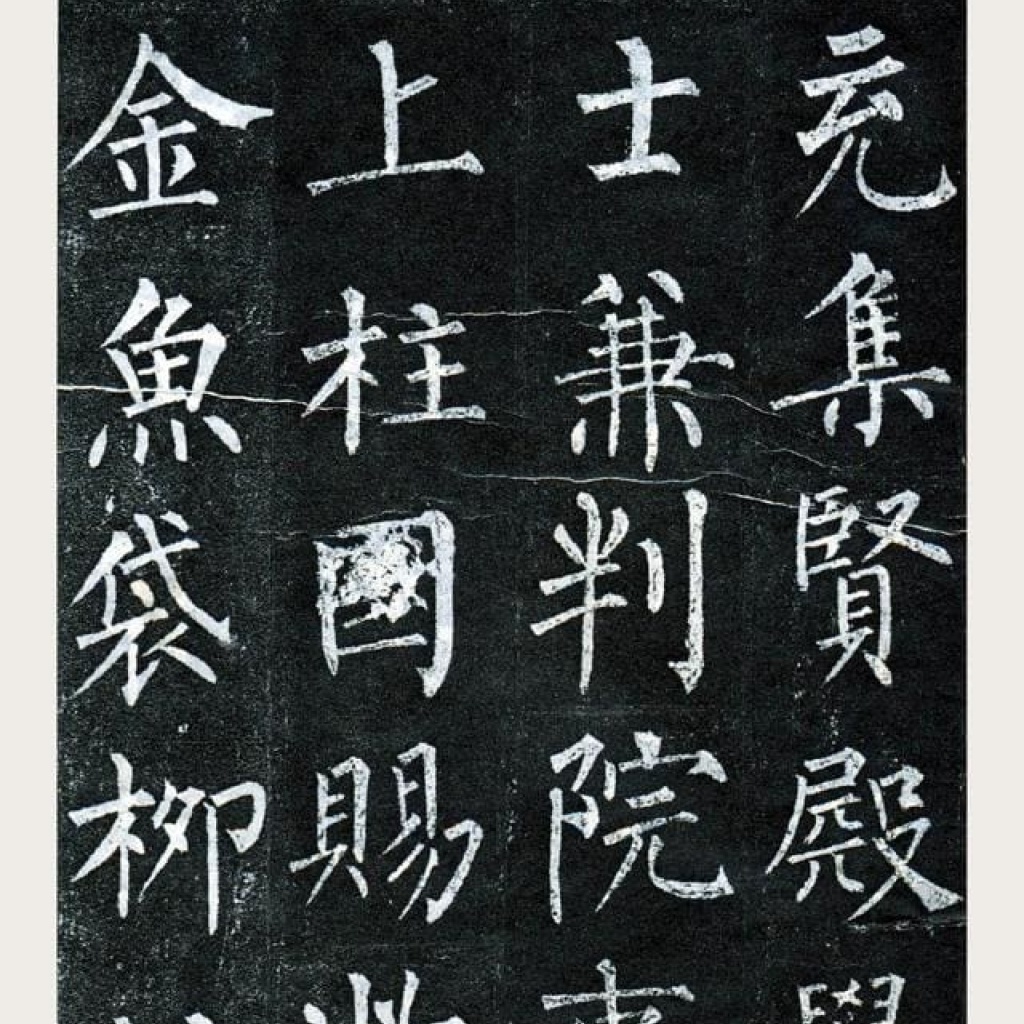 充集賢殿學
士兼判院事
上柱國賜紫
金魚袋柳